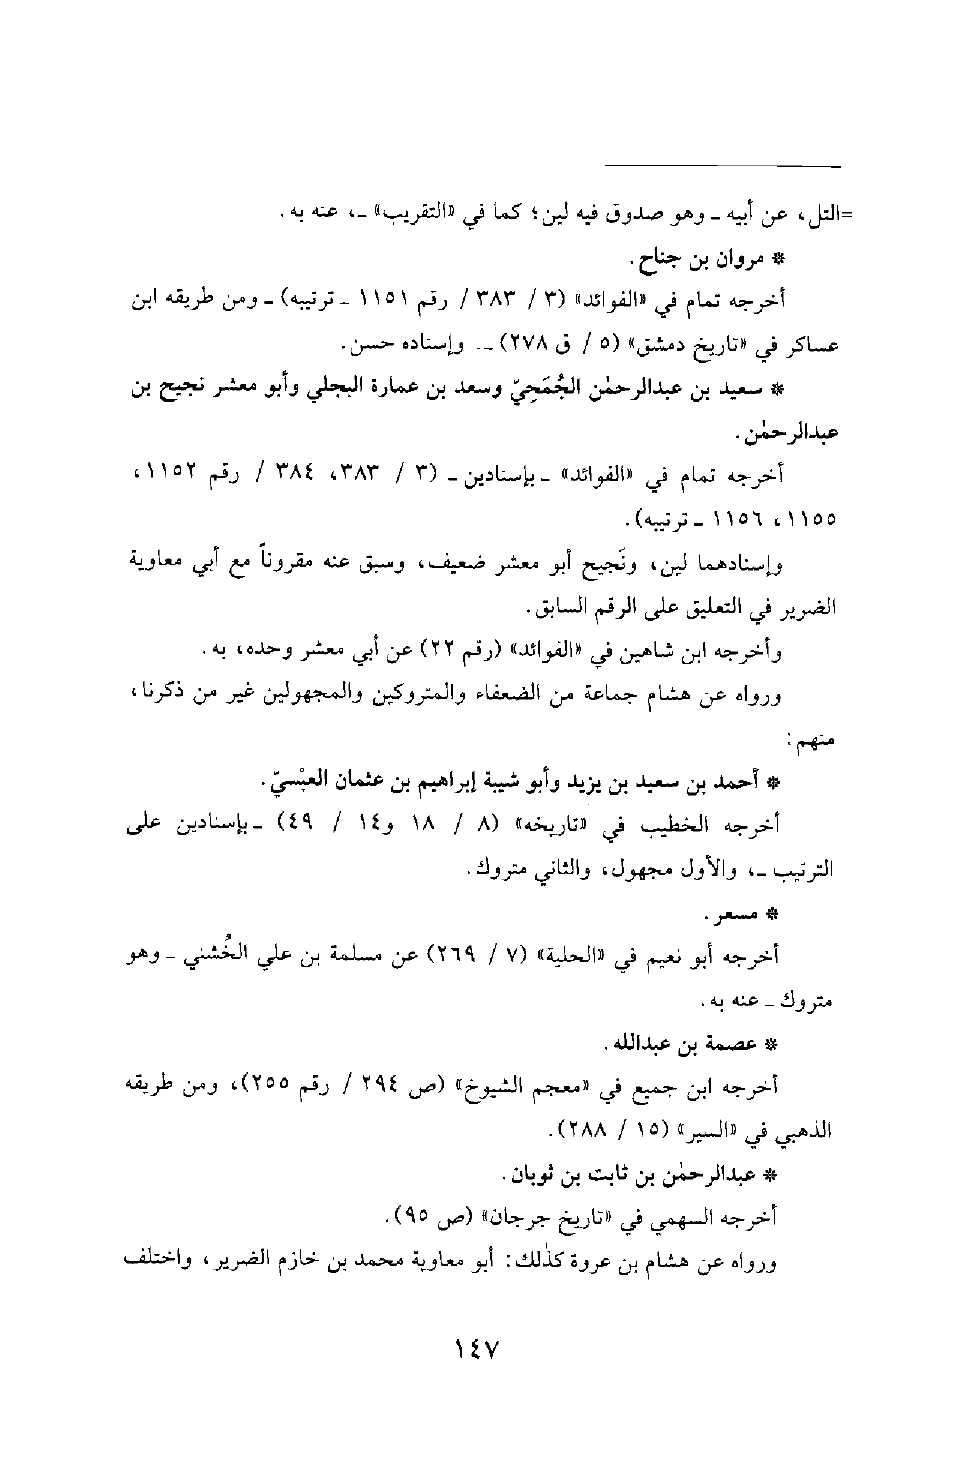 =التل، عن أبيه ـ وهو صدوق فيه لين؛ كما في «التقريب» ـ، عنه به.
* مروان بن جناح.
أخرجه تمام في «الفوائد» (٣ / ٣٨٣ / رقم ١١٥١ ـ ترتيبه) ـ ومن طريقه ابن
عساكر في «تاريخ دمشق» (٥ / ق ٢٧٨) ـ. وإسناده حسن.
* سعيد بن عبدالرحمٰن الجُمَحِيّ وسعد بن عمارة البجلي وأبو معشر نجيح بن
عبدالرحمٰن.
أخرجه تمام في «الفوائد» ـ بإسنادين ـ (٣ / ٣٨٣، ٣٨٤ / رقم ١١٥٢،
١١٥٥، ١١٥٦ ـ ترتيبه).
وإسنادهما لين، ونَجيح أبو معشر ضعيف، وسبق عنه مقروناً مع أبي معاوية
الضرير في التعليق على الرقم السابق.
وأخرجه ابن شاهين في «الفوائد» (رقم ٢٢) عن أبي معشر وحده، به.
ورواه عن هشام جماعة من الضعفاء والمتروكين والمجهولين غير من ذكرنا،
منهم:
* أحمد بن سعيد بن يزيد وأبو شيبة إبراهيم بن عثمان العبْسيّ.
أخرجه الخطيب في «تاريخه» (٨ / ١٨ و١٤ / ٤٩) ـ بإسنادين على
الترتيب ـ، والأول مجهول، والثاني متروك.
* مسعر.
أخرجه أبو نعيم في «الحلية» (٧ / ٢٦٩) عن مسلمة بن علي الخُشني ـ وهو
متروك ـ عنه به.
* عصمة بن عبدالله.
أخرجه ابن جميع في «معجم الشيوخ» (ص ٢٩٤ / رقم ٢٥٥)، ومن طريقه
الذهبي في «السير» (١٥ / ٢٨٨).
* عبدالرحمٰن بن ثابت بن ثوبان.
أخرجه السهمي في «تاريخ جرجان» (ص ٩٥).
ورواه عن هشام بن عروة كذٰلك: أبو معاوية محمد بن خازم الضرير، واختلف
١٤٧